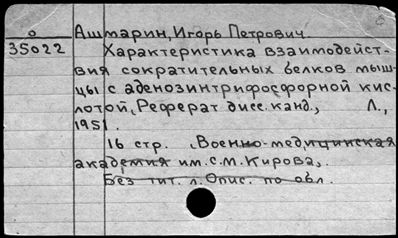 о Ашмарин, Игорь Петрович.
35022 Характеристика взаимодейст-
вия сократительных белков мыш-
цы с аденозинтрифосфорной кис-
лотой, Реферат дисс. канд., Л.,
1951.
16 стр. (Военно-медицинская
академия им. С.М. Кирова).
Без тит. л. Опис. по обл.